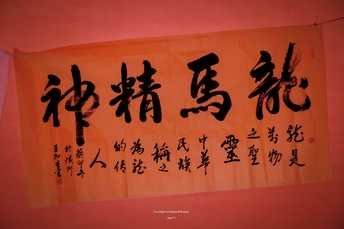 龍馬精神
龍是
萬物
之聖
靈
中華
民族
稱之
為龍
的傳
人